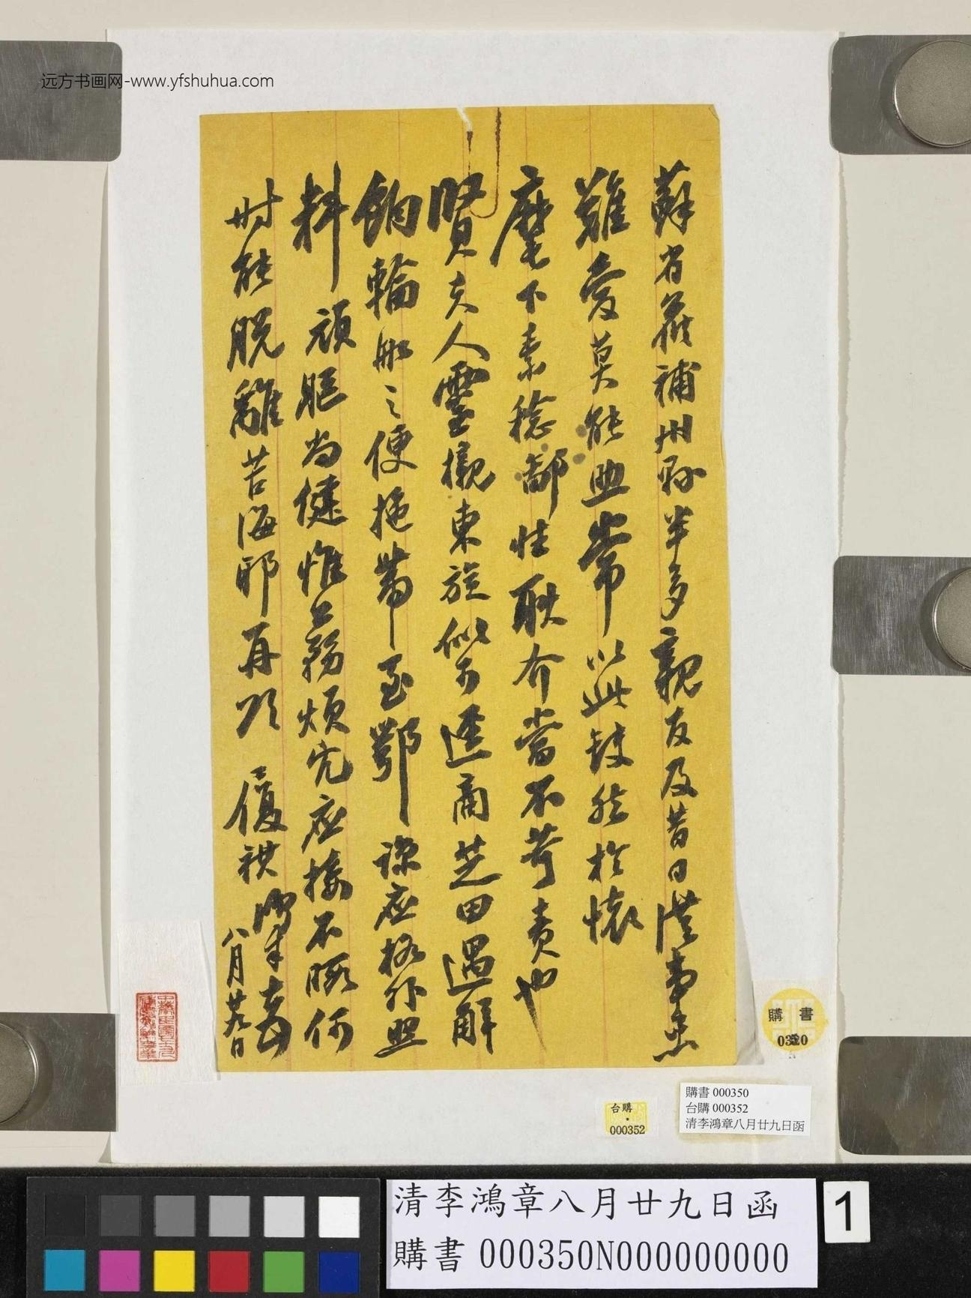 远方书画网-www.yfshuhua.com
蘇省薦補州縣半多親友及昔日從事
雖愛莫能助常以此歉然於懷
麾下素稔鄙性耿介當不苛責也
賢夫人靈櫬東旋似可遣商芝田遇解
餉輪船之便拖帶至鄂諒應格外照
料頑軀尚健惟公務煩冗應接不暇何
時能脫離苦海耶再頌
復祺
八月廿九日
購書
0320
台購
000352
購書 000350
台購 000352
清李鴻章八月廿九日函
清李鴻章八月廿九日函
購書 000350N000000000
1